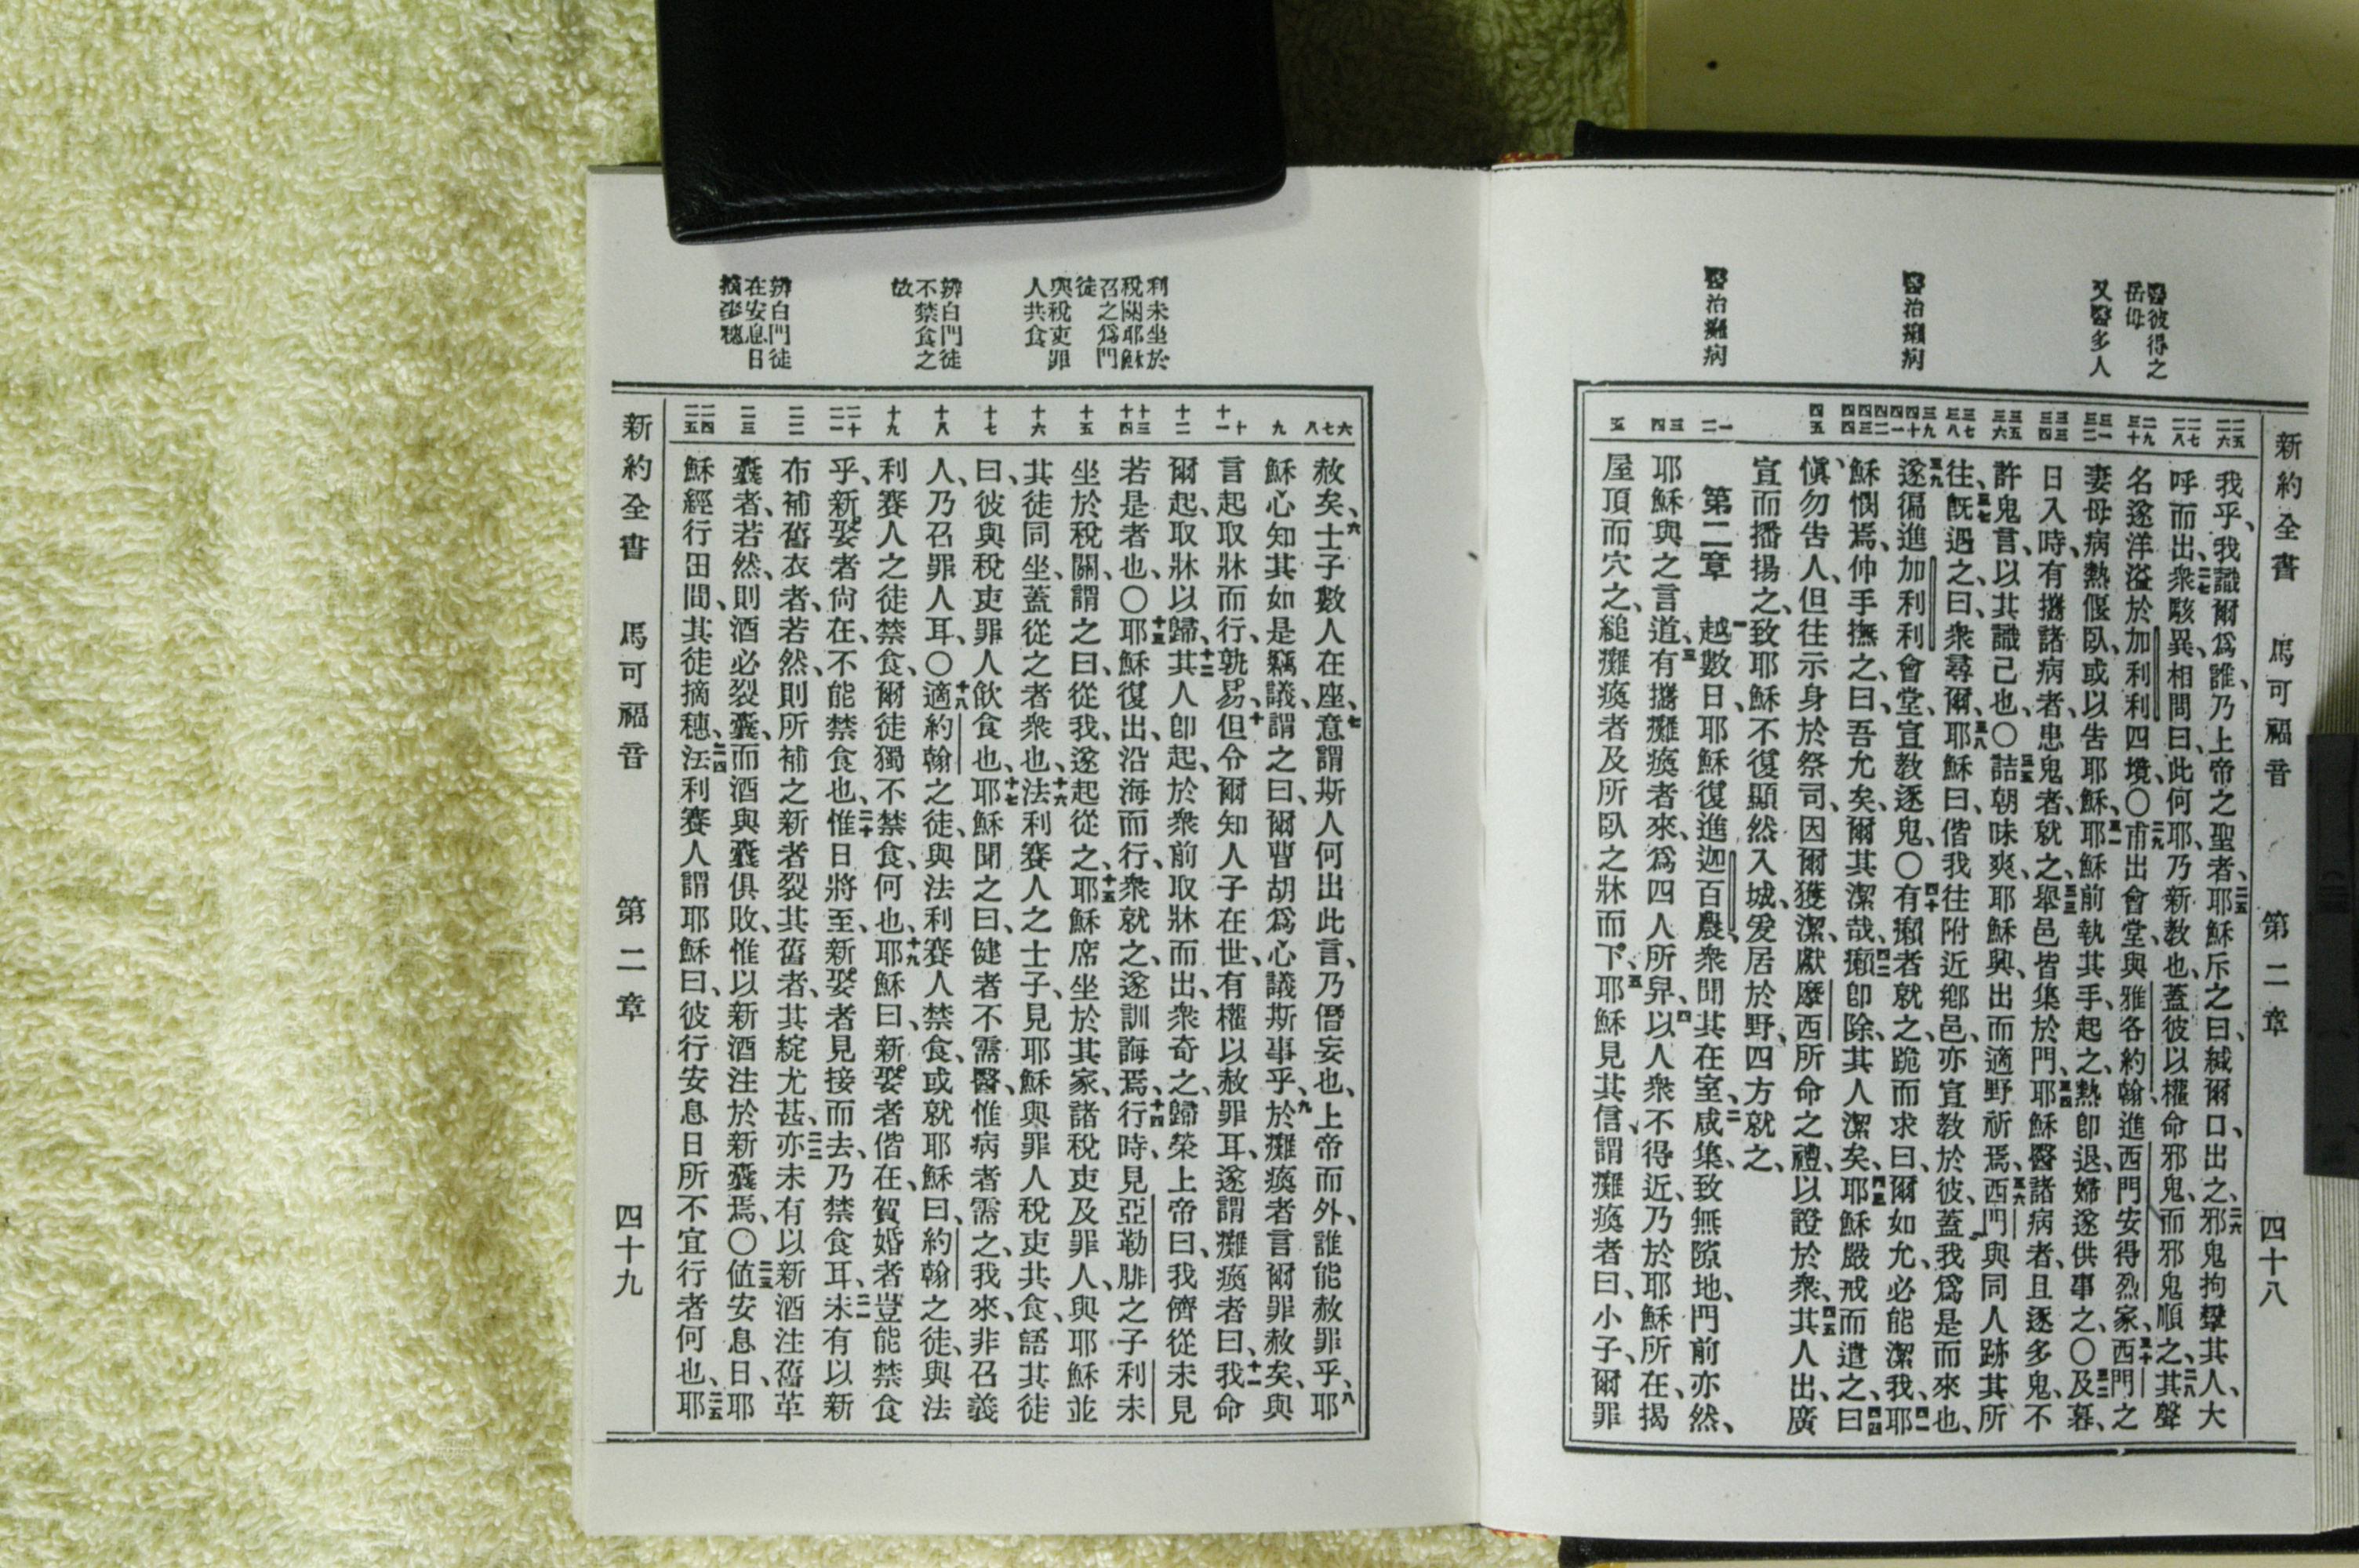 新約全書 馬可福音 第二章 四十八
醫彼得之
岳母
又醫多人
醫治癩病
醫治癱病
二五 二六
二七 二八
二九 三十
三一 三二
三三 三四
三五 三六
三七 三八
三九 四十 四一
四二 四三 四四
四五
一 二
三 四
五
我乎、我識爾爲誰、乃上帝之聖者、二五耶穌斥之曰、緘爾口、出之、二六邪鬼拘攣其人、大
呼而出、二七衆駭異、相問曰、此何耶、乃新教也、蓋彼以權命邪鬼、而邪鬼順之、二八其聲
名遂洋溢於加利利四境、〇二九甫出會堂、與雅各約翰進西門安得烈家、三十西門之
妻母病熱偃臥、或以告耶穌、三一耶穌前執其手、起之、熱卽退、婦遂供事之、〇三二及暮、
日入時、有攜諸病者、患鬼者、就之、三三舉邑皆集於門、三四耶穌醫諸病者、且逐多鬼、不
許鬼言、以其識己也、〇三五詰朝昧爽、耶穌興、出而適野祈焉、三六西門與同人跡其所
往、三七旣遇之、曰、衆尋爾、三八耶穌曰、偕我往附近鄉邑、亦宣教於彼、蓋我爲是而來也、
三九遂徧進加利利會堂、宣教逐鬼、〇四十有癩者就之、跪而求曰、爾如允、必能潔我、四一耶
穌憫焉、伸手撫之、曰、吾允矣、爾其潔哉、四二癩卽除、其人潔矣、四三耶穌嚴戒而遣之、四四曰
愼勿告人、但往示身於祭司、因爾獲潔、獻摩西所命之禮、以證於衆、四五其人出、廣
宣而播揚之、致耶穌不復顯然入城、爰居於野、四方就之、
第二章 一越數日、耶穌復進迦百農、衆聞其在室、二咸集、致無隙地、門前亦然、
耶穌與之言道、三有攜癱瘓者來、爲四人所舁、四以人衆不得近、乃於耶穌所在、揭
屋頂而穴之、縋癱瘓者及所臥之牀而下、五耶穌見其信、謂癱瘓者曰、小子、爾罪
利未坐於
稅關耶穌
召之爲門
徒
與稅吏罪
人共食
辨白門徒
不禁食之
故
辨白門徒
在安息日
摘麥穗
六 七 八
九
十 十一
十二
十三 十四
十五
十六
十七
十八
十九
二十 二一
二二
二三
二四 二五
赦矣、六士子數人在座、七意謂斯人何出此言、乃僭妄也、上帝而外、誰能赦罪乎、八耶
穌心知其如是竊議、謂之曰、爾曹胡爲心議斯事乎、九於癱瘓者言爾罪赦矣、與
言起取牀而行、孰易、十但令爾知人子在世、有權以赦罪耳、遂謂癱瘓者曰、十一我命
爾起、取牀以歸、十二其人卽起、於衆前取牀而出、衆奇之、歸榮上帝曰、我儕從未見
若是者也、〇十三耶穌復出、沿海而行、衆就之、遂訓誨焉、十四行時、見亞勒腓之子利未
坐於稅關、謂之曰、從我、遂起從之、十五耶穌席坐於其家、諸稅吏及罪人、與耶穌並
其徒同坐、蓋從之者衆也、十六法利賽人之士子、見耶穌與罪人稅吏共食、語其徒
曰、彼與稅吏罪人飲食也、十七耶穌聞之曰、健者不需醫、惟病者需之、我來、非召義
人、乃召罪人耳、〇十八適約翰之徒、與法利賽人禁食、或就耶穌曰、約翰之徒、與法
利賽人之徒禁食、爾徒獨不禁食、何也、十九耶穌曰、新娶者偕在、賀婚者豈能禁食
乎、新娶者尙在、不能禁食也、二十惟日將至、新娶者見接而去、乃禁食耳、二一未有以新
布補舊衣者、若然、則所補之新者裂其舊者、其綻尤甚、二二亦未有以新酒注舊革
囊者、若然、則酒必裂囊、而酒與囊俱敗、惟以新酒注於新囊焉、〇二三値安息日、耶
穌經行田間、其徒摘穗、二四法利賽人謂耶穌曰、彼行安息日所不宜行者何也、二五耶
新約全書 馬可福音 第二章 四十九